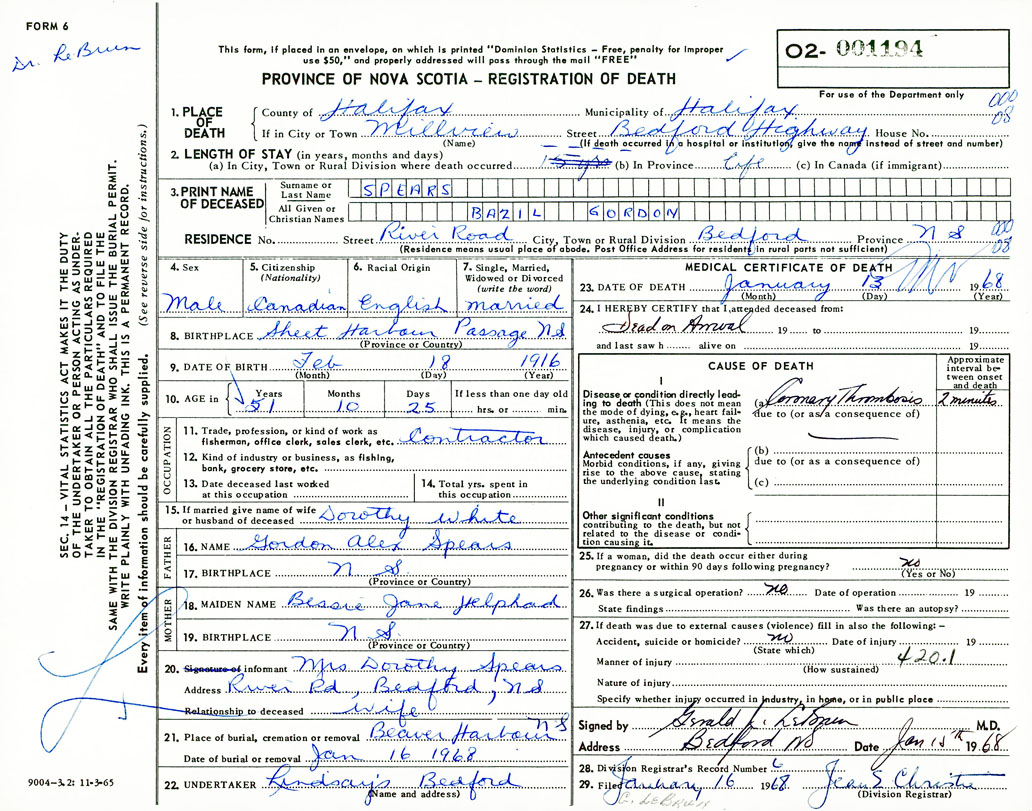 FORM 6
Dr. LeBrun
This form, if placed in an envelope, on which is printed "Dominion Statistics – Free, penalty for improper
use $50," and properly addressed will pass through the mail "FREE"
PROVINCE OF NOVA SCOTIA – REGISTRATION OF DEATH
O2- 001194
For use of the Department only
000
08
1. PLACE OF DEATH
County of Halifax Municipality of Halifax
If in City or Town Millview Street Bedford Highway House No.
(Name) (If death occurred in a hospital or institution, give the name instead of street and number)
2. LENGTH OF STAY (in years, months and days)
(a) In City, Town or Rural Division where death occurred 15 yrs (b) In Province Life (c) In Canada (if immigrant)
3. PRINT NAME OF DECEASED
Surname or Last Name SPEARS
All Given or Christian Names BAZIL GORDON
RESIDENCE No. Street River Road City, Town or Rural Division Bedford Province N S
000
08
(Residence means usual place of abode. Post Office Address for residents in rural parts not sufficient)
4. Sex
Male
5. Citizenship
(Nationality)
Canadian
6. Racial Origin
English
7. Single, Married,
Widowed or Divorced
(write the word)
married
8. BIRTHPLACE Sheet Harbour Passage NS
(Province or Country)
9. DATE OF BIRTH Feb 18 1916
(Month) (Day) (Year)
10. AGE in Years Months Days If less than one day old
51 10 25 hrs. or min.
OCCUPATION
11. Trade, profession, or kind of work as
fisherman, office clerk, sales clerk, etc. Contractor
12. Kind of industry or business, as fishing,
bank, grocery store, etc.
13. Date deceased last worked
at this occupation
14. Total yrs. spent in
this occupation
15. If married give name of wife
or husband of deceased Dorothy White
FATHER
16. NAME Gordon Alex Spears
17. BIRTHPLACE N S.
(Province or Country)
MOTHER
18. MAIDEN NAME Bessie Jane Helphad
19. BIRTHPLACE N S.
(Province or Country)
20. Signature of informant Mrs Dorothy Spears
Address River Rd, Bedford, NS
Relationship to deceased wife
21. Place of burial, cremation or removal Beaver Harbour NS
Date of burial or removal Jan 16 1968
22. UNDERTAKER Lindsay's Bedford
(Name and address)
MEDICAL CERTIFICATE OF DEATH
23. DATE OF DEATH January 13 1968
(Month) (Day) (Year)
24. I HEREBY CERTIFY that I attended deceased from:
Dead on Arrival 19 to 19
and last saw h alive on 19
CAUSE OF DEATH
Approximate
interval be-
tween onset
and death
I
Disease or condition directly lead-
ing to death (This does not mean
the mode of dying, e.g., heart fail-
ure, asthenia, etc. It means the
disease, injury, or complication
which caused death.)
(a) Coronary Thrombosis 2 minutes
due to (or as a consequence of)
Antecedent causes
Morbid conditions, if any, giving
rise to the above cause, stating
the underlying condition last.
(b)
due to (or as a consequence of)
(c)
II
Other significant conditions
contributing to the death, but not
related to the disease or condi-
tion causing it.
25. If a woman, did the death occur either during
pregnancy or within 90 days following pregnancy? no
(Yes or No)
26. Was there a surgical operation? no Date of operation 19
State findings Was there an autopsy?
27. If death was due to external causes (violence) fill in also the following: –
Accident, suicide or homicide? no Date of injury 19
(State which)
Manner of injury 420.1
(How sustained)
Nature of injury
Specify whether injury occurred in industry, in home, or in public place
Signed by Gerald L. LeBrun M.D.
Address Bedford NS Date Jan 15th 1968
28. Division Registrar's Record Number 6
29. Filed January 16 1968 Jean E Christie
(Division Registrar)
G. LEBRUN
SEC. 14 – VITAL STATISTICS ACT MAKES IT THE DUTY
OF THE UNDERTAKER OR PERSON ACTING AS UNDER-
TAKER TO OBTAIN ALL THE PARTICULARS REQUIRED
IN THE "REGISTRATION OF DEATH" AND TO FILE THE
SAME WITH THE DIVISION REGISTRAR WHO SHALL ISSUE THE BURIAL PERMIT.
WRITE PLAINLY WITH UNFADING INK. THIS IS A PERMANENT RECORD.
Every item of information should be carefully supplied. (See reverse side for instructions.)
9004-3.2: 11-3-65